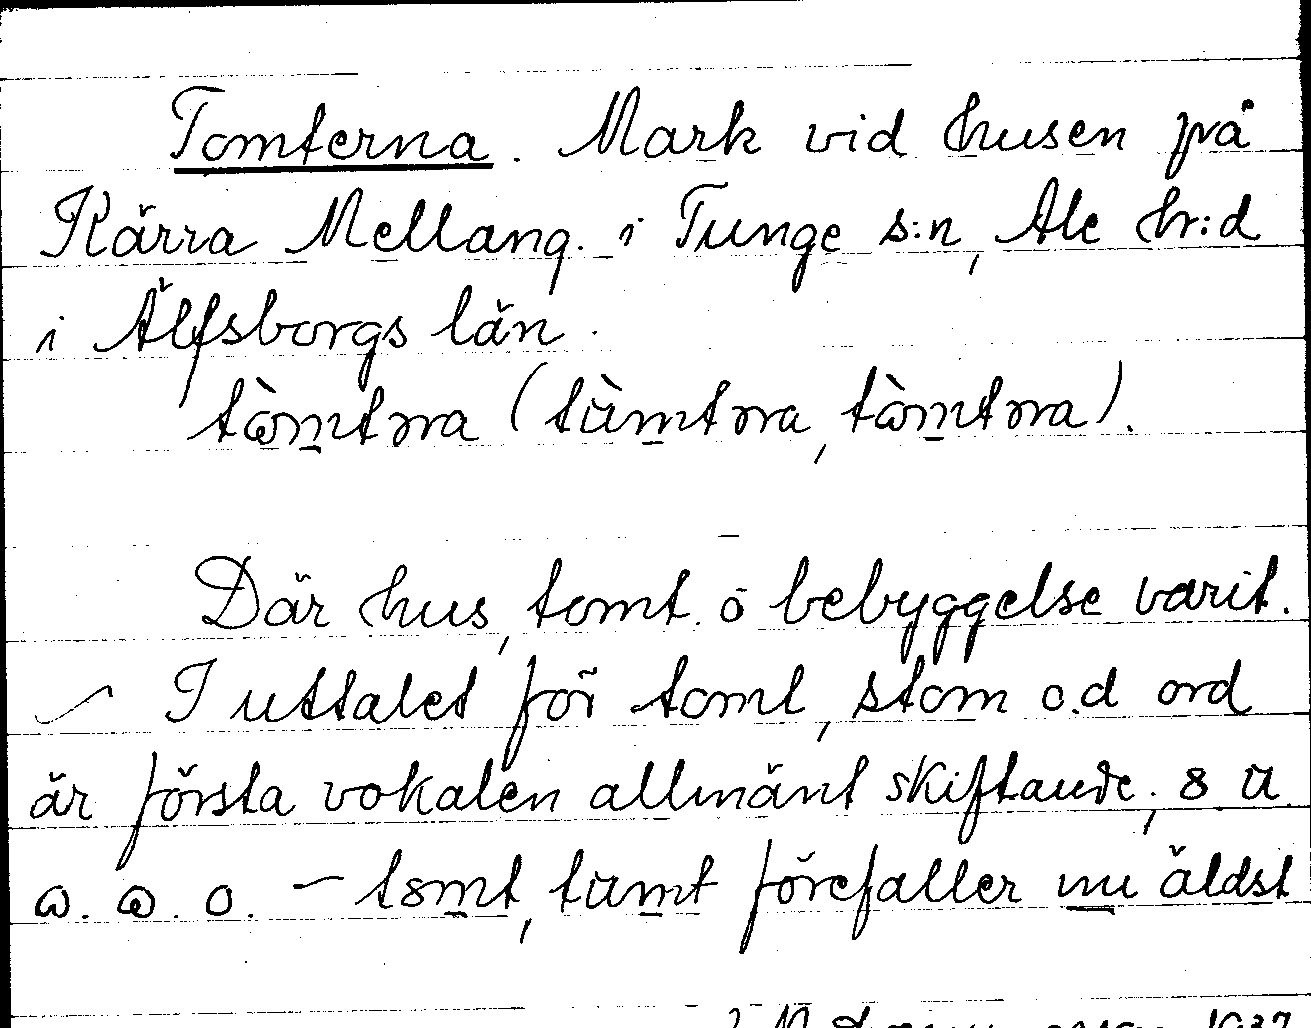 Tomterna. Mark vid husen på
Kärra Mellang. i Tunge s:n, Ale hr:d
i Älfsborgs län.
Där hus, tomt. o bebyggelse varit.
I uttalet för tomt, stom o.d ord
är första vokalen allmänt skiftande, 8 ü
ω. ω. o. – t8mt, tümt förefaller nu äldst
1937